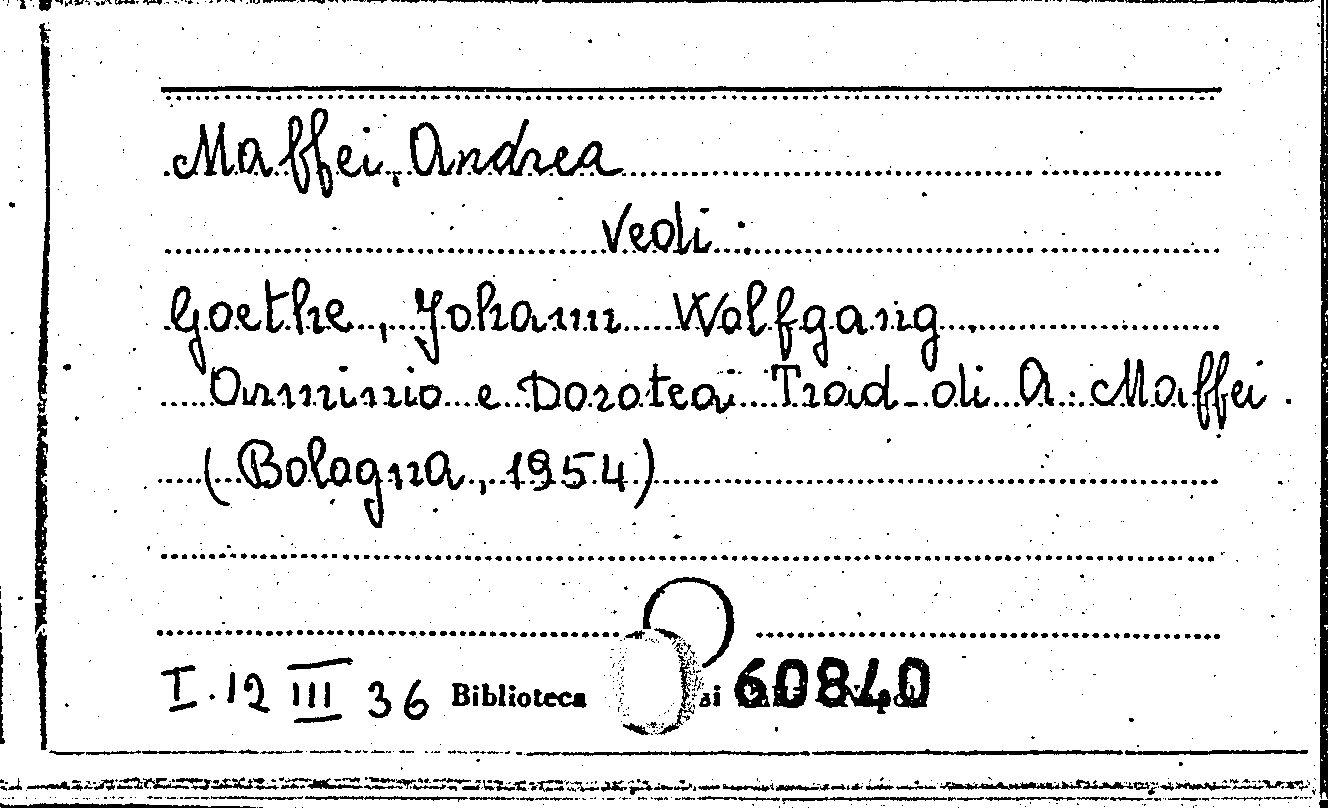 Maffei, Andrea
Vedi:
Goethe, Johann Wolfgang.
Arminio e Dorotea. Trad. di A. Maffei.
(Bologna, 1954)
I.12 III 36 Biblioteca 60840